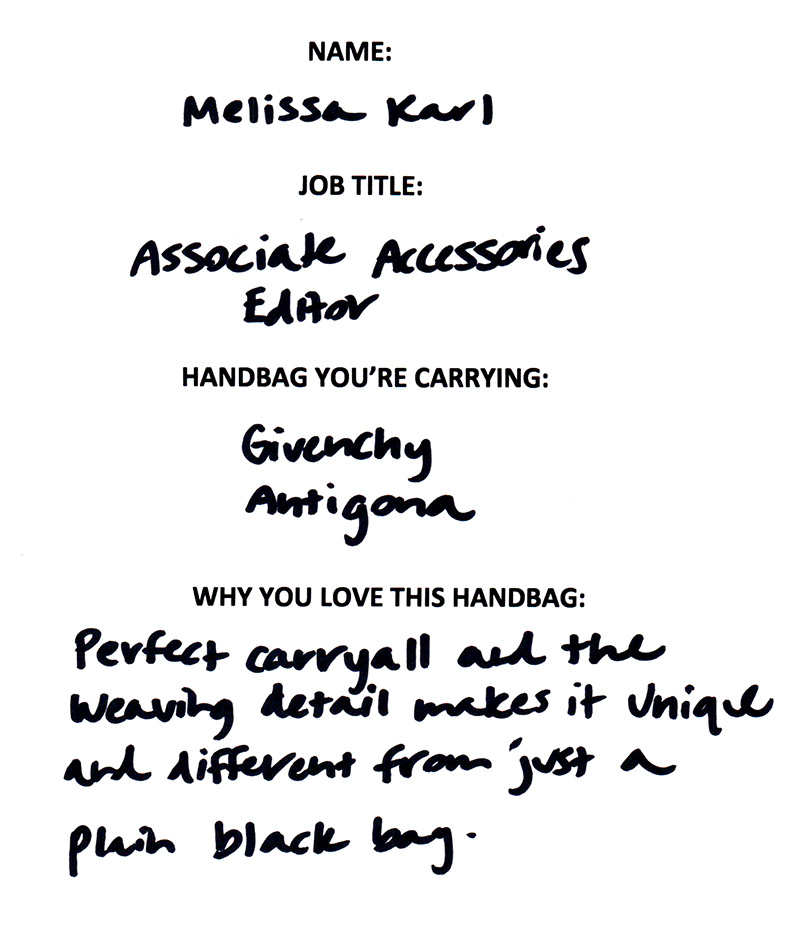 NAME:
Melissa Karl
JOB TITLE:
Associate Accessories
Editor
HANDBAG YOU'RE CARRYING:
Givenchy
Antigona
WHY YOU LOVE THIS HANDBAG:
Perfect carryall and the
weaving detail makes it unique
and different from just a
plain black bag.